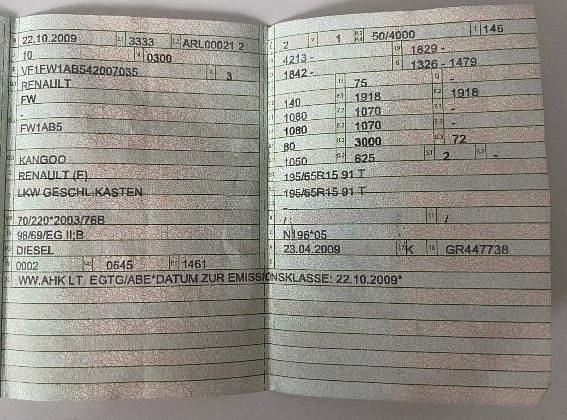 22.10.2009 3333 ARL00021 2
10 0300
VF1FW1AB542007035 3
RENAULT
FW
-
FW1AB5
KANGOO
RENAULT (F)
LKW GESCHL.KASTEN
70/220*2003/76B
98/69/EG II;B
DIESEL
0002 0645 1461
WW.AHK LT. EGTG/ABE*DATUM ZUR EMISSIONSKLASSE: 22.10.2009*
2 1 50/4000 146
4213 - 1829 -
1842 - 1326 - 1479
75 -
140 1918 1918
1080 1070 -
1080 1070 -
80 3000 72
1050 625 2 -
195/65R15 91 T
195/65R15 91 T
/ /
N196*05
23.04.2009 K GR447738